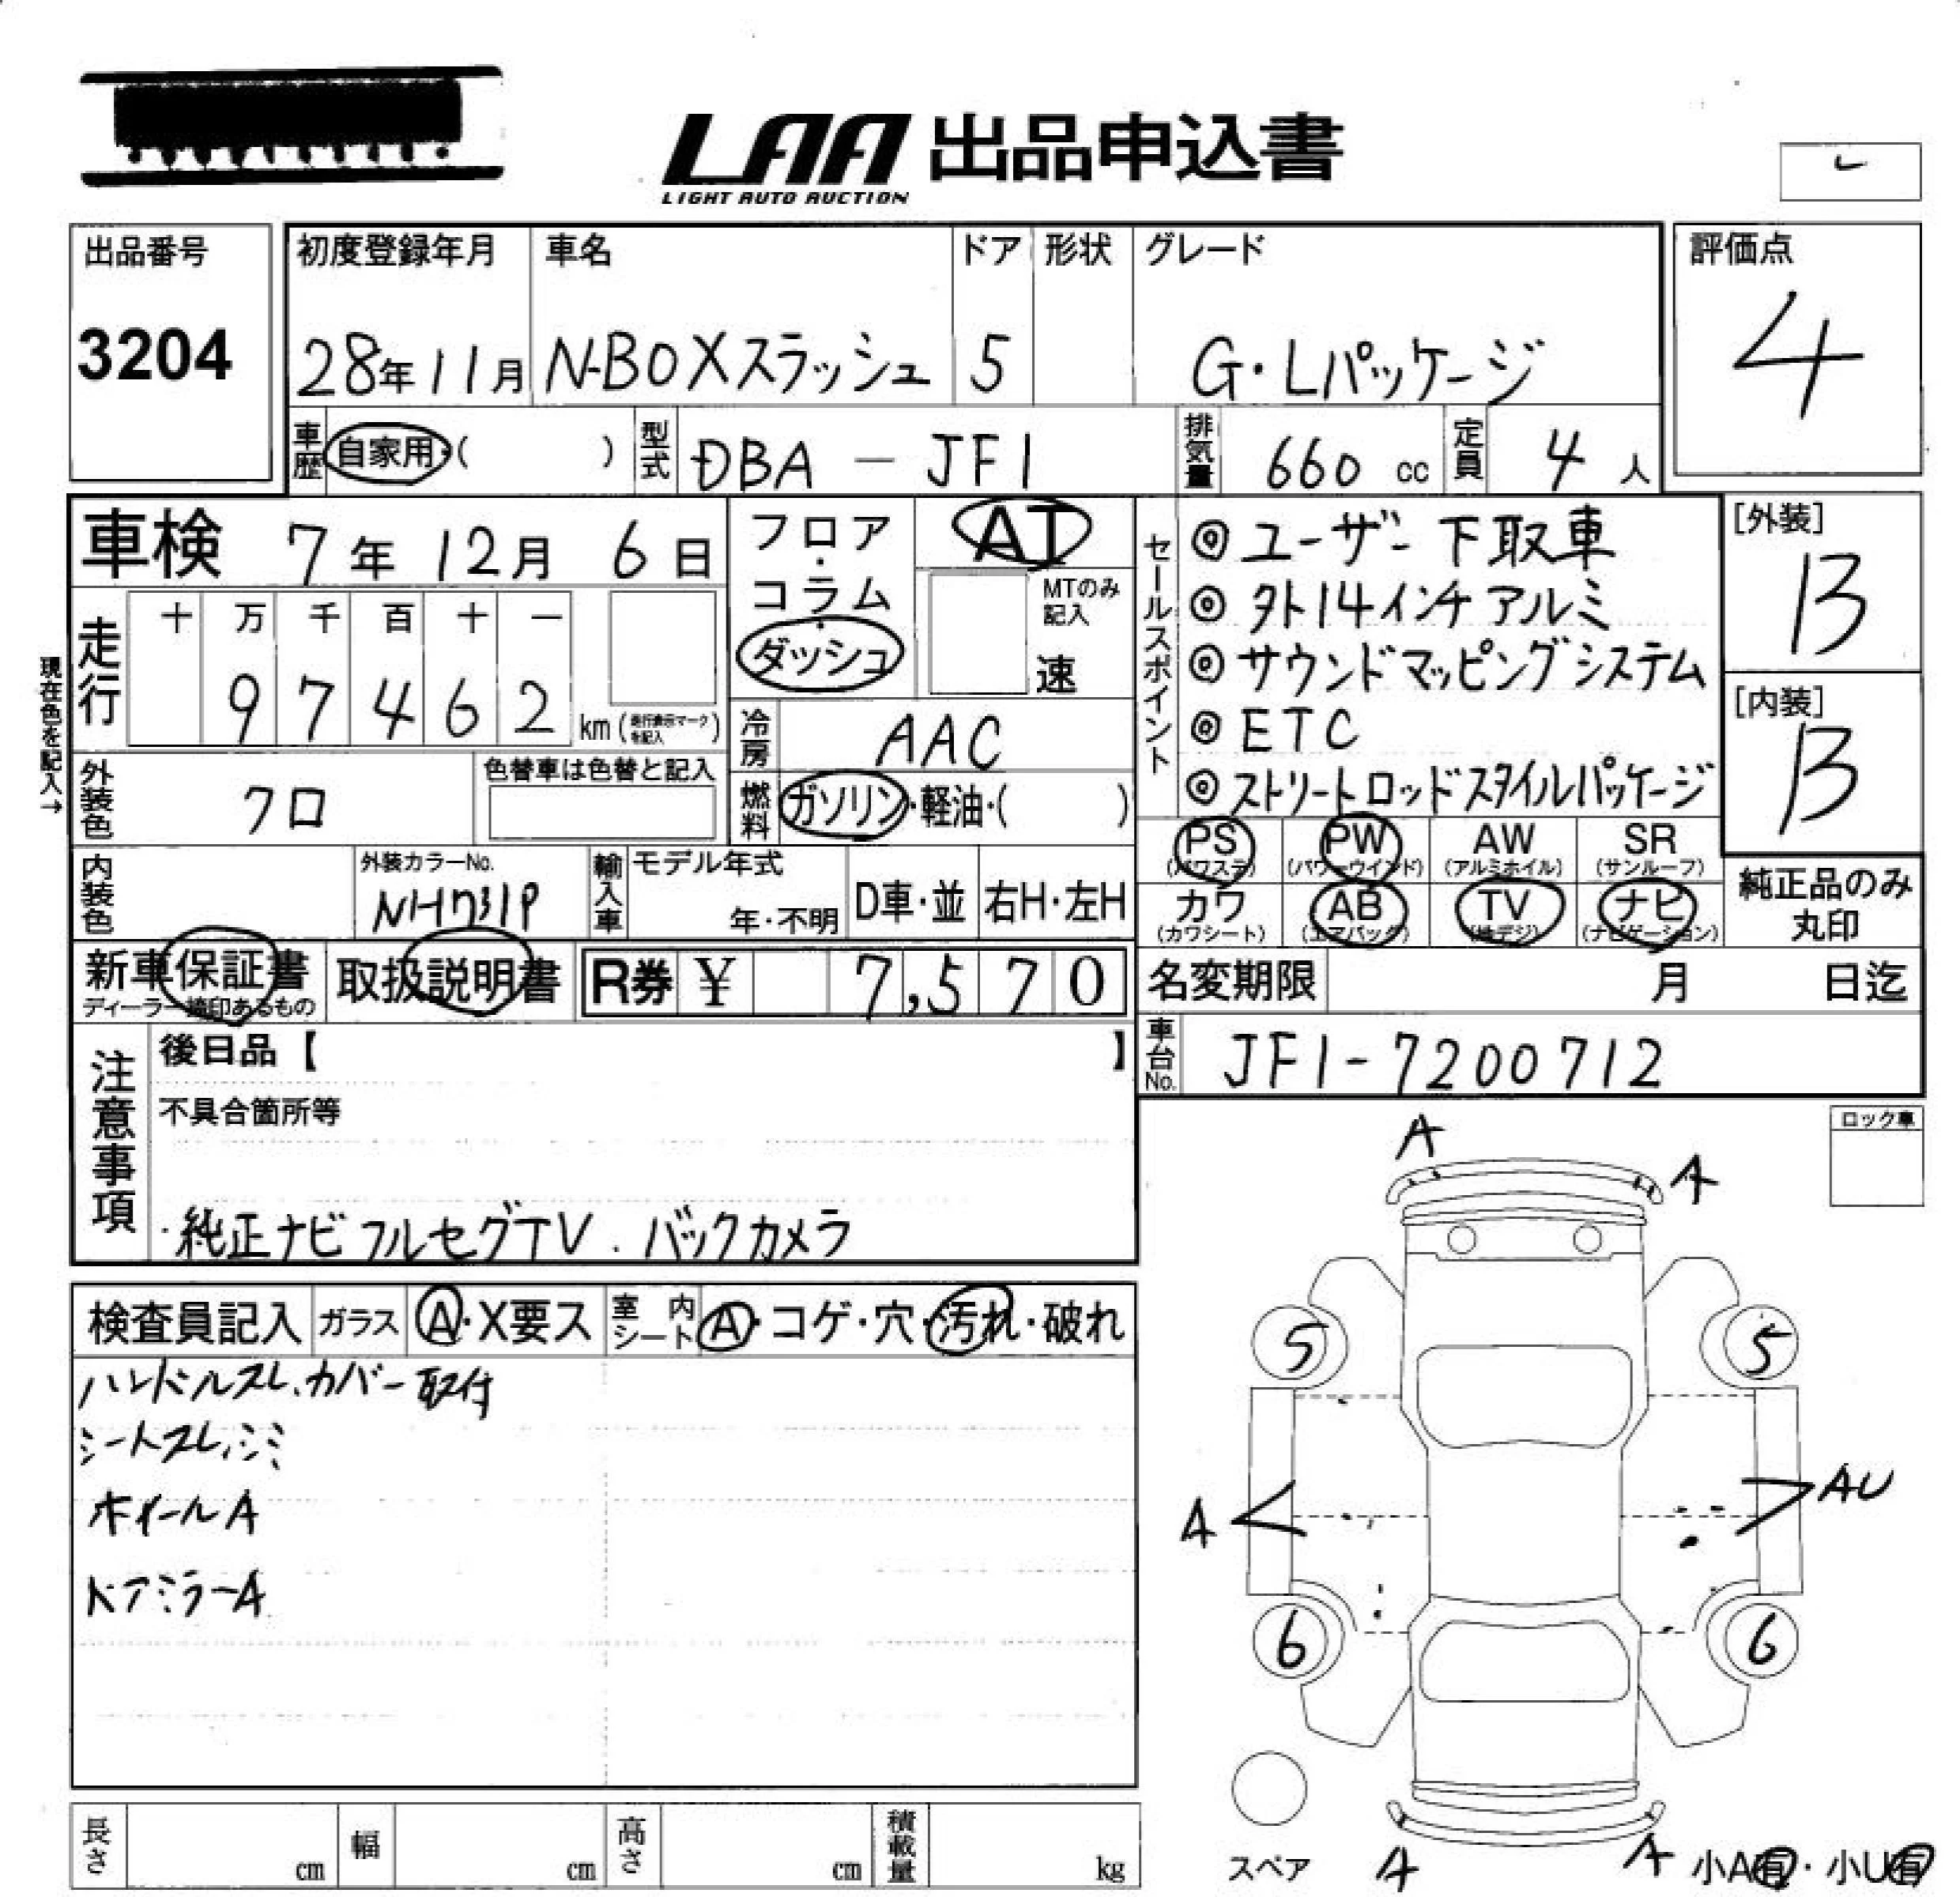 LAA 出品申込書
LIGHT AUTO AUCTION
出品番号
3204
初度登録年月
28年11月
車名
N-BOXスラッシュ
ドア
5
形状
グレード
G・Lパッケージ
評価点
4
車歴
自家用・( )
型式
DBA - JF1
排気量
660 cc
定員
4 人
車検 7年12月6日
現在色を記入→
走行
十 万 千 百 十 一
9 7 4 6 2 km (走行表示マークを記入)
フロア・コラム・ダッシュ
AT
MTのみ記入
速
冷房
AAC
燃料
ガソリン・軽油・( )
外装色
クロ
色替車は色替と記入
内装色
外装カラーNo.
NH731P
輸入車
モデル年式
年・不明
D車・並
右H・左H
セールスポイント
◎ユーザー下取車
◎外14インチアルミ
◎サウンドマッピングシステム
◎ETC
◎ストリートロッドスタイルパッケージ
[外装]
B
[内装]
B
PS
(パワステ)
PW
(パワーウインド)
AW
(アルミホイル)
SR
(サンルーフ)
カワ
(カワシート)
AB
(エアバッグ)
TV
(地デジ)
ナビ
(ナビゲーション)
純正品のみ
丸印
新車保証書
ディーラー捺印あるもの
取扱説明書
R券 ¥ 7,570
名変期限 月 日迄
車台No.
JF1-7200712
注意事項
後日品【 】
不具合箇所等
・純正ナビフルセグTV．バックカメラ
ロック車
検査員記入
ガラス
A・X要ス
室内シート
A・コゲ・穴・汚れ・破れ
ハンドルスレ、カバー取付
シートスレ、シミ
ホイールA
ドアミラーA
A
A
5
5
A
AU
6
6
スペア
A
A
小A有・小U有
長さ
cm
幅
cm
高さ
cm
積載量
kg